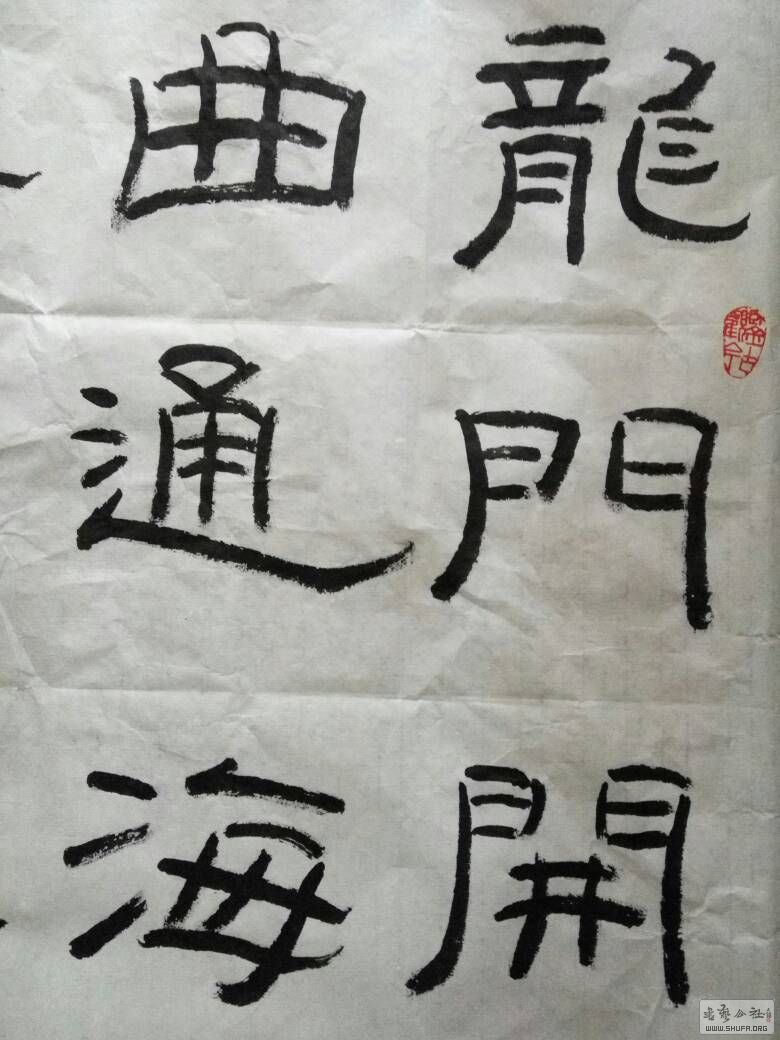 龍門開
曲通海
WWW.SHUFA.ORG